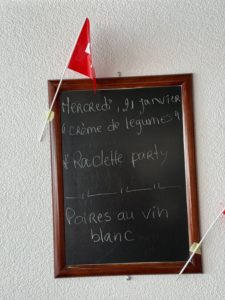 Mercredi, 21 janvier
"crème de legumes"
* Raclette party
Poires au vin
blanc